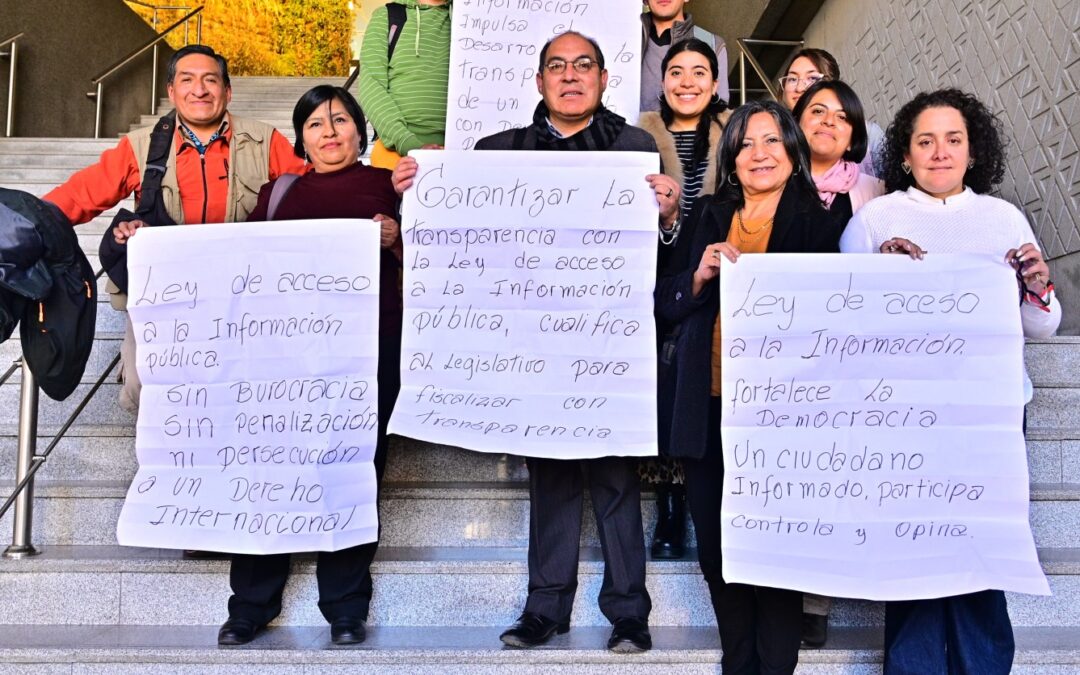 Información
Impulsa el
Desarro
la
transpa
de un
con De
Ley de acceso
a la Información
pública.
sin Burocracia
sin penalización
ni persecución
a un Dereho
Internacional
Garantizar la
transparencia con
la Ley de acceso
a la Información
pública, cualifica
al Legislativo para
fiscalizar con
transparencia
Ley de aceso
a la Información.
fortalece la
Democracia
Un ciudadano
Informado, participa
controla y opina.